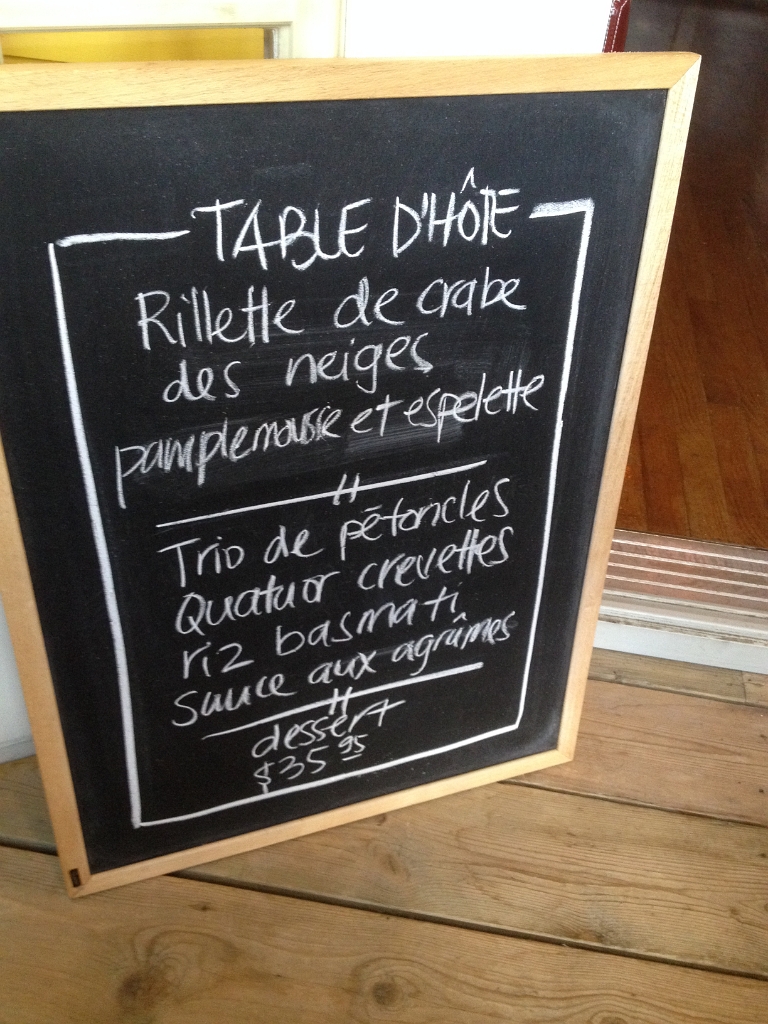 TABLE D'HÔTE
Rillette de crabe
des neiges
pamplemousse et espelette
//
Trio de pétoncles
Quatuor crevettes
riz basmati
Sauce aux agrûmes
//
dessert
$35 95